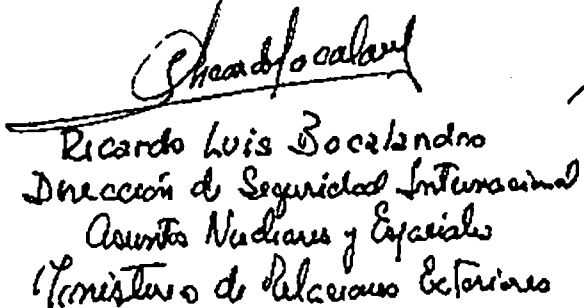 Ricardo Bocalandro
Ricardo Luis Bocalandro
Dirección de Seguridad Internacional
Asuntos Nucleares y Espaciales
Ministerio de Relaciones Exteriores